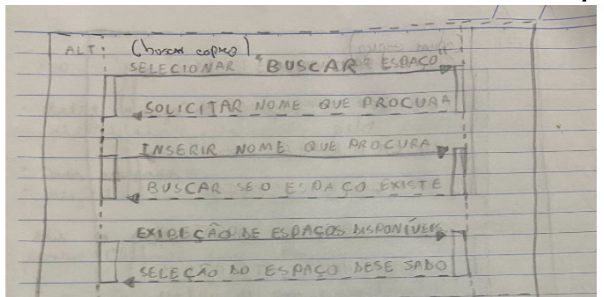 ALT: (buscar espaço)
SELECIONAR "BUSCAR ESPAÇO
SOLICITAR NOME QUE PROCURA
INSERIR NOME QUE PROCURA
BUSCAR SE O ESPAÇO EXISTE
EXIBEÇÃO DE ESPAÇOS DISPONÍVEIS
SELEÇÃO DO ESPAÇO DESEJADO